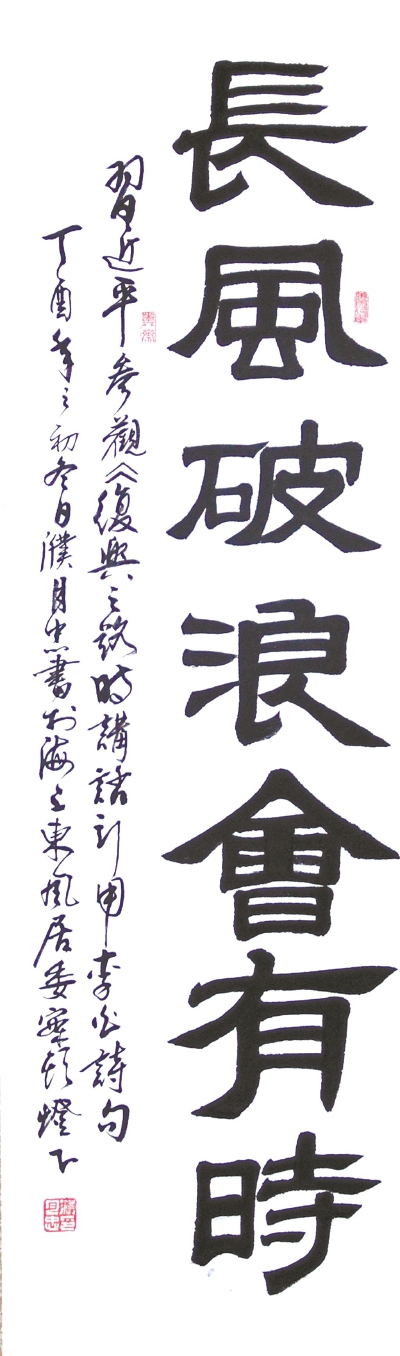 長風破浪會有時
習近平參觀《復興之路》時講話引用李白詩句
丁酉年之初冬日濮月忠書於海上東風居委寒秋燈下